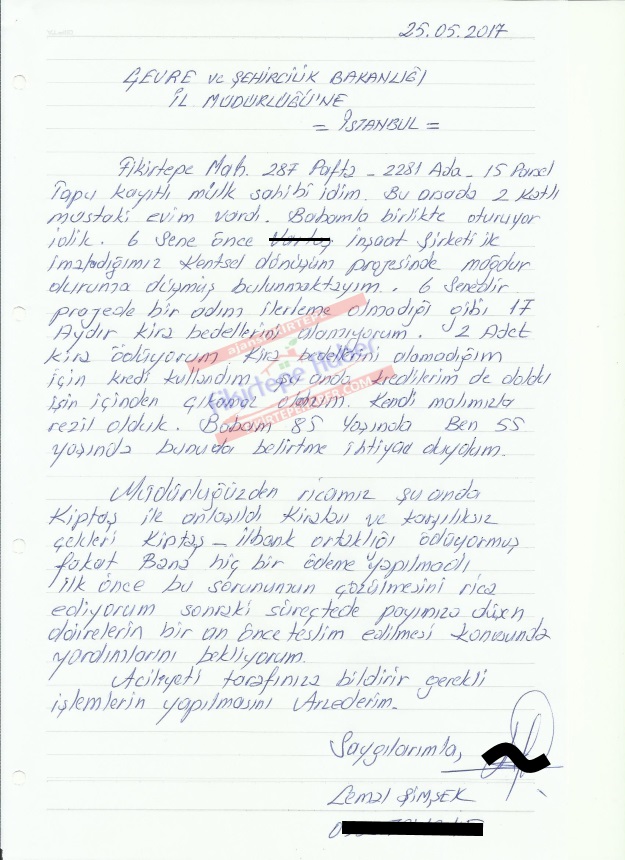 25.05.2017
ÇEVRE ve ŞEHİRCİLİK BAKANLIĞI
İL MÜDÜRLÜĞÜ'NE
= İSTANBUL =
Fikirtepe Mah. 287 Pafta - 2281 Ada - 15 Parsel
Tapu kayıtlı mülk sahibi idim. Bu arsada 2 Katlı
müstaki evim vardı. Babamla birlikte oturuyor
idik. 6 Sene önce İnşaat Şirketi ile
imzaladığımız Kentsel dönüşüm projesinde mağdur
duruma düşmüş bulunmaktayım. 6 Senedir
projede bir adım ilerleme olmadığı gibi 17
Aydır kira bedellerini alamıyorum. 2 Adet
kira ödüyorum kira bedellerini alamadığım
için kredi kullandım şu anda kredilerim de doldu
işin içinden çıkamaz oldum. Kendi malımızla
rezil olduk. Babam 85 Yaşında Ben 55
yaşında bunuda belirtme ihtiyacı duydum.
Müdürlüğüzden ricamız şu anda
Kiptaş ile anlaşıldı Kiraları ve karşılıksız
çekleri Kiptaş - ilbank ortaklığı ödüyormuş
fakat Bana hiç bir ödeme yapılmadı
ilk önce bu sorunumun çözülmesini rica
ediyorum sonraki süreçtede payımıza düşen
dairelerin bir an önce teslim edilmesi konusunda
yardımlarını bekliyorum.
Aciliyeti tarafınıza bildirir gerekli
işlemlerin yapılmasını Arzederim.
Saygılarımla,
Cemal ŞİMŞEK
Fikirtepe Haber